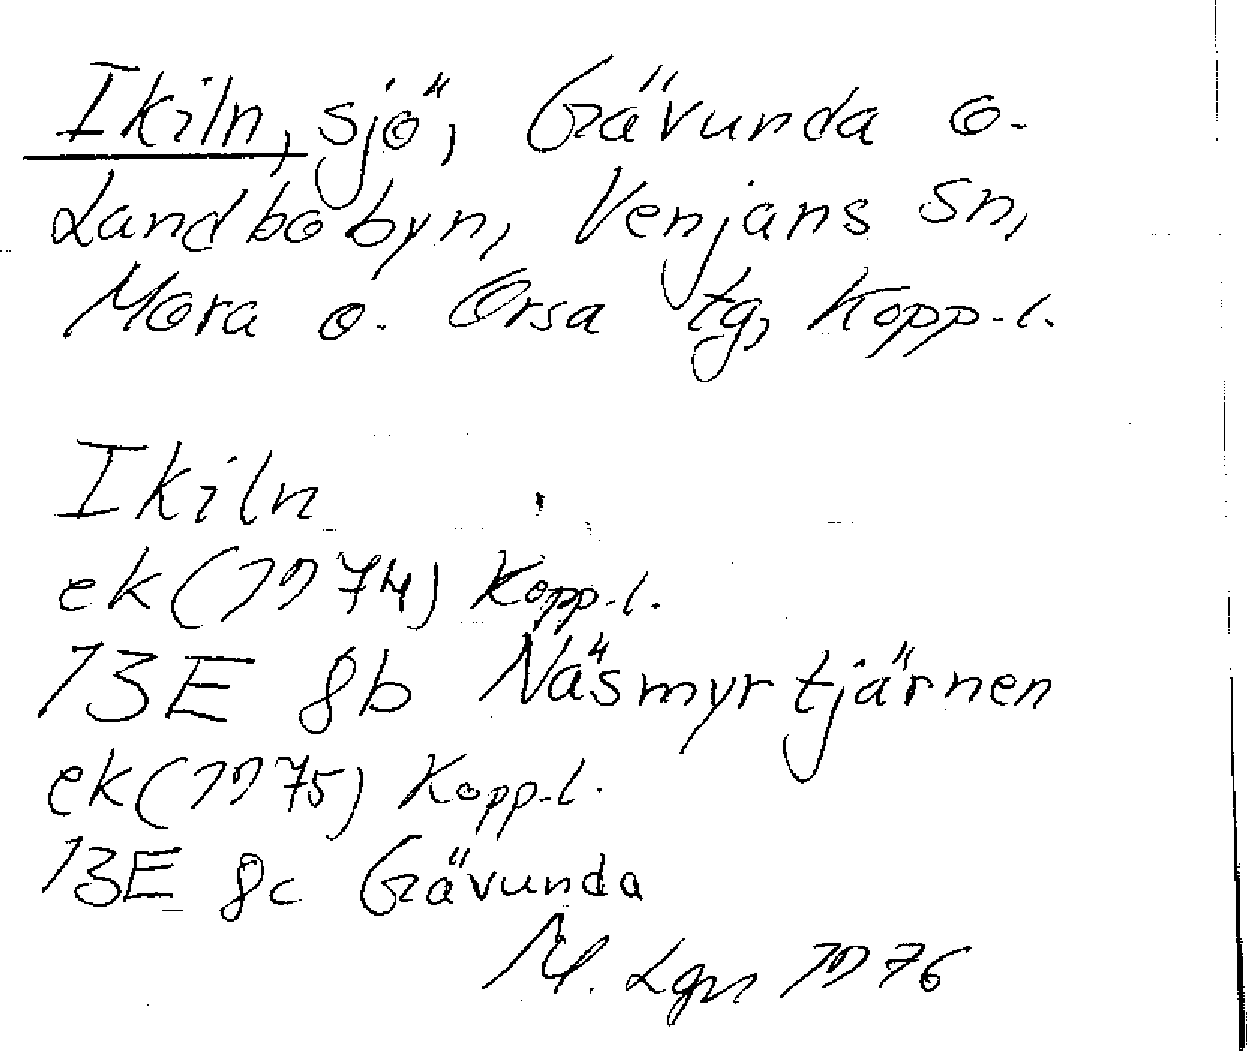 Ikiln, sjö, Grävunda o.
Landbobyn, Venjans sn,
Mora o. Orsa tg, Kopp.l.
Ikiln
ek (1974) Kopp.l.
13E 8b Näsmyrtjärnen
ek (1975) Kopp.l.
13E 8c Grävunda
Lgn 1976